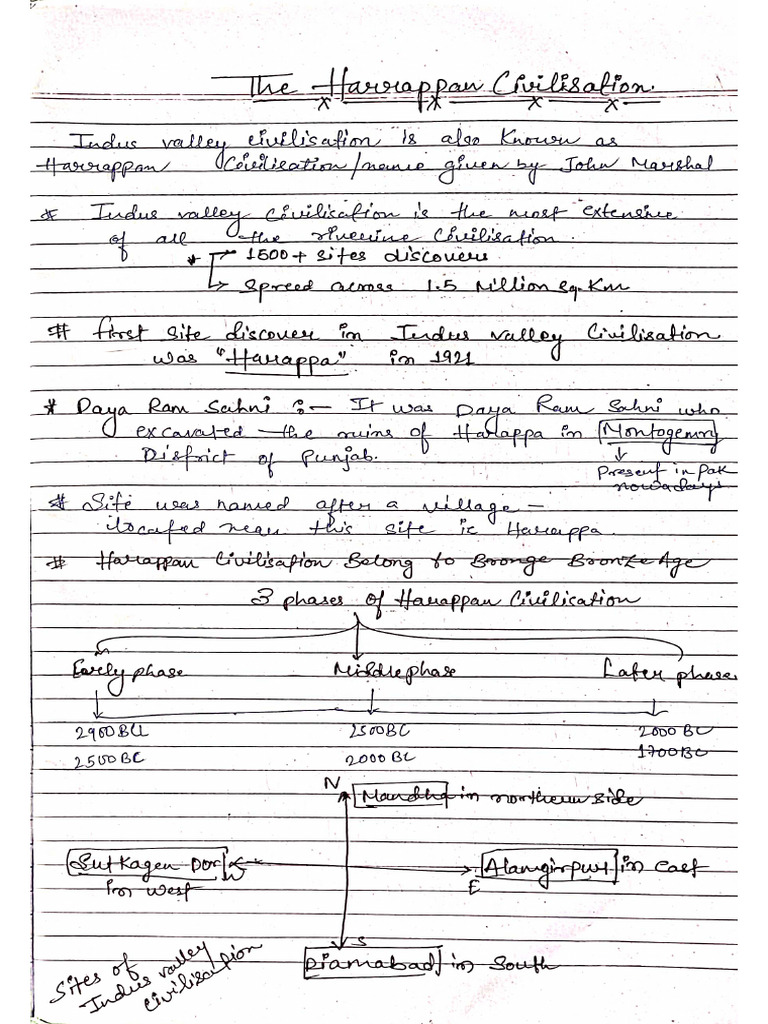 The Harrappan Civilisation.
Indus valley civilisation is also Known as
Harrappan Civilisation/name given by John Marshal
* Indus valley Civilisation is the most extensive
of all the riverine Civilisation.
* 1500+ sites discovers
Spread across 1.5 Million Sq. Km
# first site discover in Indus valley Civilisation
was "Harappa" in 1921
* Daya Ram Sahni :- It was Daya Ram Sahni who
excavated the ruins of Harappa in Montogemry
District of Punjab.
Present in Pak
nowadays
# Site was named after a village -
located near this site is Harappa.
# Harrappan Civilisation Belong to Bronge Bronze Age
3 phases of Harappan Civilisation
Early phase Middle phase Later phase
2900 BC 2500 BC 2000 BC
2500 BC 2000 BC 1700 BC
N
Mandha in northern side
Sutkagen Dor W Alamgirpur in east
in west E
S
Diamabad in South
Sites of
Indus valley
Civilisation